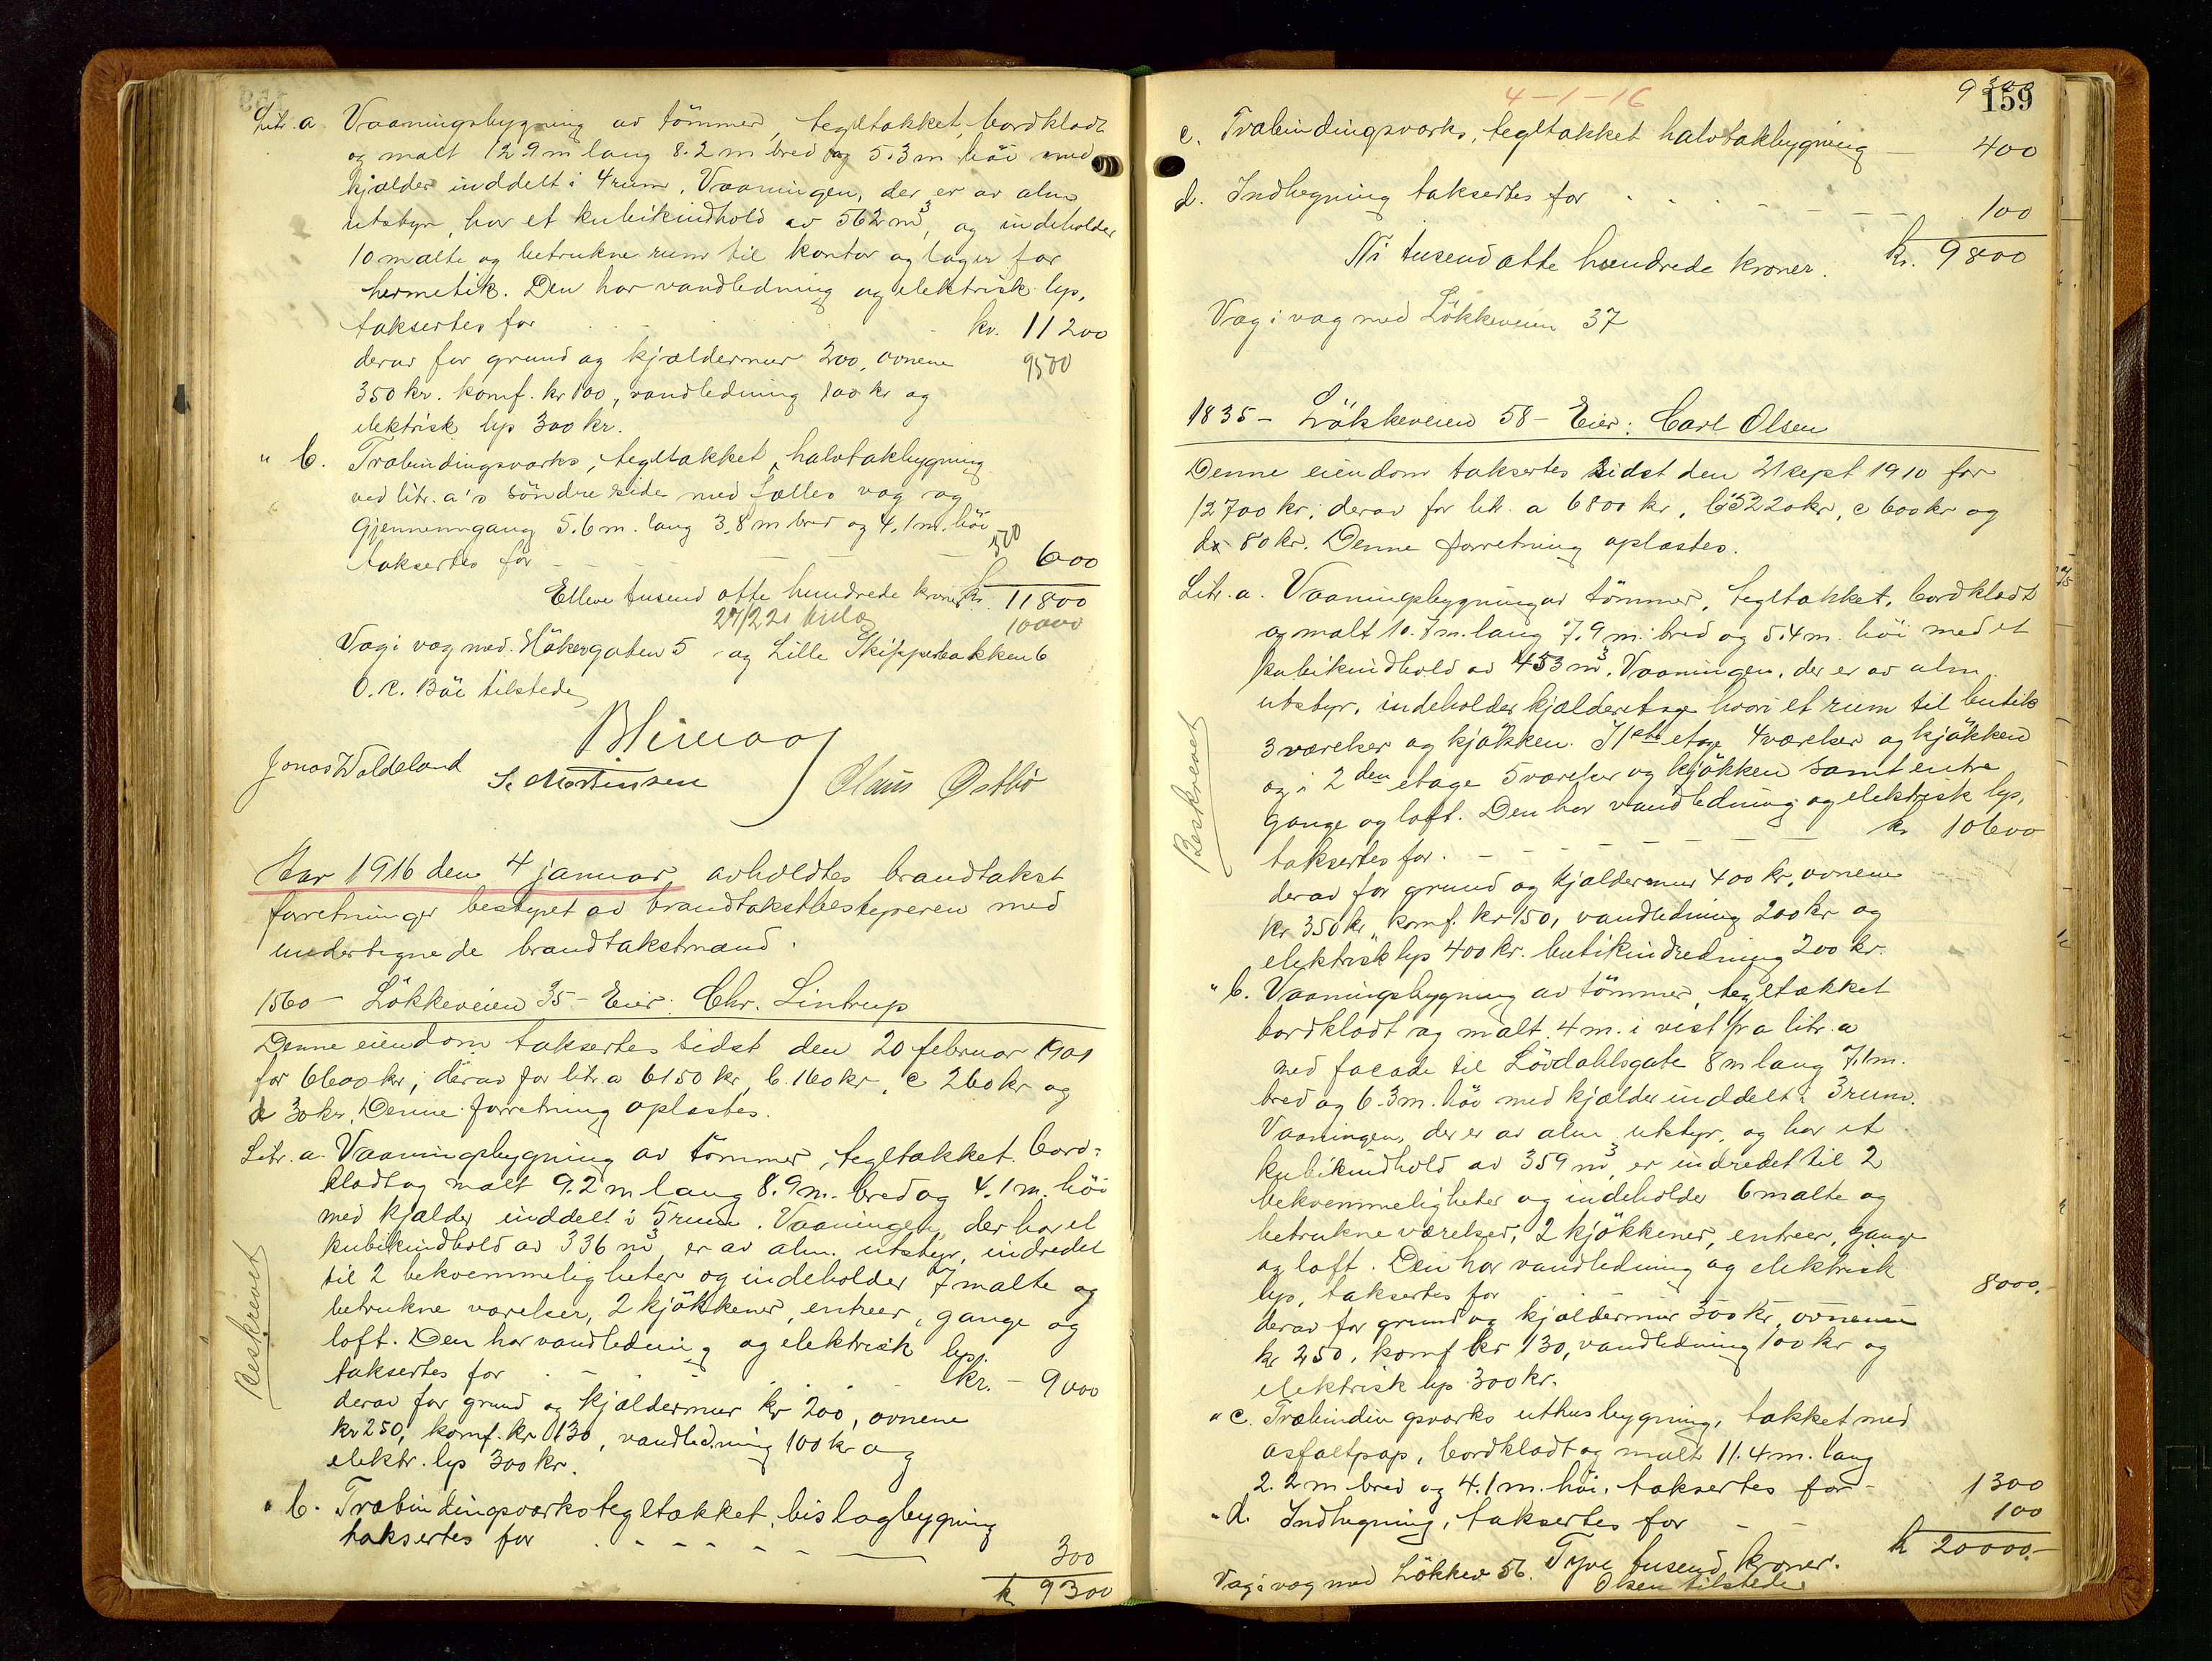 Litr. a Vaaningsbygning av tömmer, tegltakket, bordklædt
og malt 12.9 m lang 8.2 m bred og 5.3 m höi med
kjælder inddelt i 4 rum. Vaaningen, der er av alm
utstyr, har et kubikindhold av 562 m³, og indeholder
10 malte og betrukne rum til kontor og lager for
hermetik. Den har vandledning og elektrisk lys,
taksertes for kr. 11200
derav for grund og kjældermur 200, ovnene 9500
350 kr. komf. kr 100, vandledning 100 kr og
elektrisk lys 300 kr.
" b. Træbindingsværks, tegltakket, halvtakbygning
ved litr. a's söndre side med fælles væg og
gjennemgang 5.6 m. lang 3.8 m bred og 4.1 m. höi
500
taksertes for 600
Elleve tusend otte hundrede kroner kr. 11800
10000
Væg i væg med Hökergaten 5 og Lille Skipperbakken 6
O. C. Böe tilstede
Jonas Woldeland S. Mortensen Claus Østbö
Aar 1916 den 4 januar avholdtes brandtakst
forretninger bestyret av brandtakstbestyreren med
undertegnede brandtakstmænd.
1560 - Lökkeveien 35 - Eier: Chr. Lintrup
Denne eiendom taksertes sidst den 20 februar 1901
for 6600 kr, derav for litr. a 6150 kr, b. 160 kr, c 260 kr og
d 30 kr. Denne forretning oplæstes.
Litr. a. Vaaningsbygning av tömmer, tegltækket, bord-
klædt og malt 9.2 m lang 8.9 m. bred og 4.1 m. höi
med kjælder inddelt i 5 rum. Vaaningen, der har et
kubikindhold av 336 m³, er av alm. utstyr, indredet
til 2 bekvemmeligheter og indeholder 7 malte og
betrukne værelser, 2 kjökkener, entreer, gange og
loft. Den har vandledning og elektrisk lys.
taksertes for kr. - 9000
derav for grund og kjældermur kr 200, ovnene
kr 250, komf. kr 130, vandledning 100 kr og
elektr. lys 300 kr.
Beskrevet
" b. Træbindingsværks tegltækket, bislagbygning
taksertes for 300
kr 9300
4-1-16
9300
159
c. Træbindingsværks, tegltakket halvtakbygning 400
d. Indhegning taksertes for 100
Ni tusend otte hundrede kroner. kr. 9800
Væg i væg med Lökkeveien 37
1835 - Lökkeveien 58 - Eier: Carl Olsen
Denne eiendom taksertes sidst den 21 sept 1910 for
12700 kr, derav for litr. a 6800 kr, b 5220 kr, c 600 kr og
d 80 kr. Denne forretning oplæstes.
Litr. a. Vaaningsbygning av tömmer, tegltækket, bordklædt
og malt 10.7 m. lang 7.9 m. bred og 5.4 m. höi med et
kubikindhold av 453 m³. Vaaningen, der er av alm
utstyr, indeholder kjælderetage hvori et rum til butik
3 værelser og kjökken. I 1ste etage 4 værelser og kjökken
og i 2den etage 5 værelser og kjökken samt entre
gange og loft. Den har vandledning og elektrisk lys,
taksertes for. kr 10600
derav for grund og kjældermur 400 kr, ovnene
kr 350 kr, komf. kr 150, vandledning 200 kr og
elektrisk lys 400 kr. butikindredning 200 kr.
Beskrevet
" b. Vaaningsbygning av tömmer, tegltækket
bordklædt og malt. 4 m. i vest fra litr. a
med facade til Lövdahlsgate 8 m lang 7.1 m.
bred og 6.3 m. höi med kjælder inddelt i 3 rum.
Vaaningen, der er av alm utstyr, og har et
kubikindhold av 359 m³, er indredet til 2
bekvemmeligheter og indeholder 6 malte og
betrukne værelser, 2 kjökkener, entreer, gange
og loft. Den har vandledning og elektrisk
lys, taksertes for 8000.
derav for grund og kjældermur 300 kr, ovnene
kr 250, komf kr 130, vandledning 100 kr og
elektrisk lys 300 kr.
" c. Træbindingsværks uthusbygning, takket med
asfaltpap, bordklædt og malt 11.4 m. lang
2.2 m bred og 4.1 m. höi, taksertes for - 1300
" d. Indhegning, taksertes for 100
Tyve tusend kroner. kr 20000.-
Væg i væg med Lökkev 56. Olsen tilstede